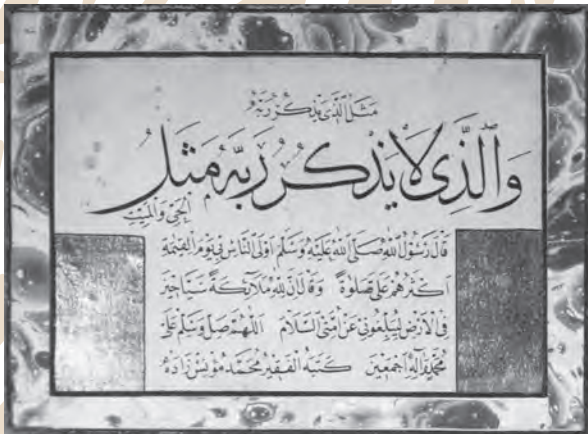 مَثَلُ الَّذِي يَذْكُرُ رَبَّهُ
وَالَّذِي لَا يَذْكُرُ رَبَّهُ مَثَلُ
الْحَيِّ وَالْمَيِّتِ
قَالَ رَسُولُ اللهِ صَلَّى اللهُ عَلَيْهِ وَسَلَّمَ اَوْلَى النَّاسِ بِي يَوْمَ الْقِيٰمَةِ
اَكْثَرُهُمْ عَلَيَّ صَلٰوةً وَقَالَ اِنَّ لِلّٰهِ مَلَائِكَةً سَيَّاحِينَ
فِي الْاَرْضِ يُبَلِّغُونِي عَنْ اُمَّتِي السَّلَامَ اَللّٰهُمَّ صَلِّ وَسَلِّمْ عَلَى
مُحَمَّدٍ وَاٰلِهِ اَجْمَعِينَ كَتَبَهُ الْفَقِيرُ مُحَمَّد مُونِس زَادَه